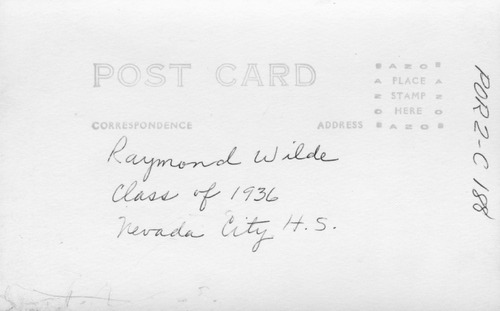 POST CARD
AZO
PLACE
STAMP
HERE
AZO
CORRESPONDENCE
ADDRESS
Raymond Wilde
Class of 1936
Nevada City H.S.
POR2-C188